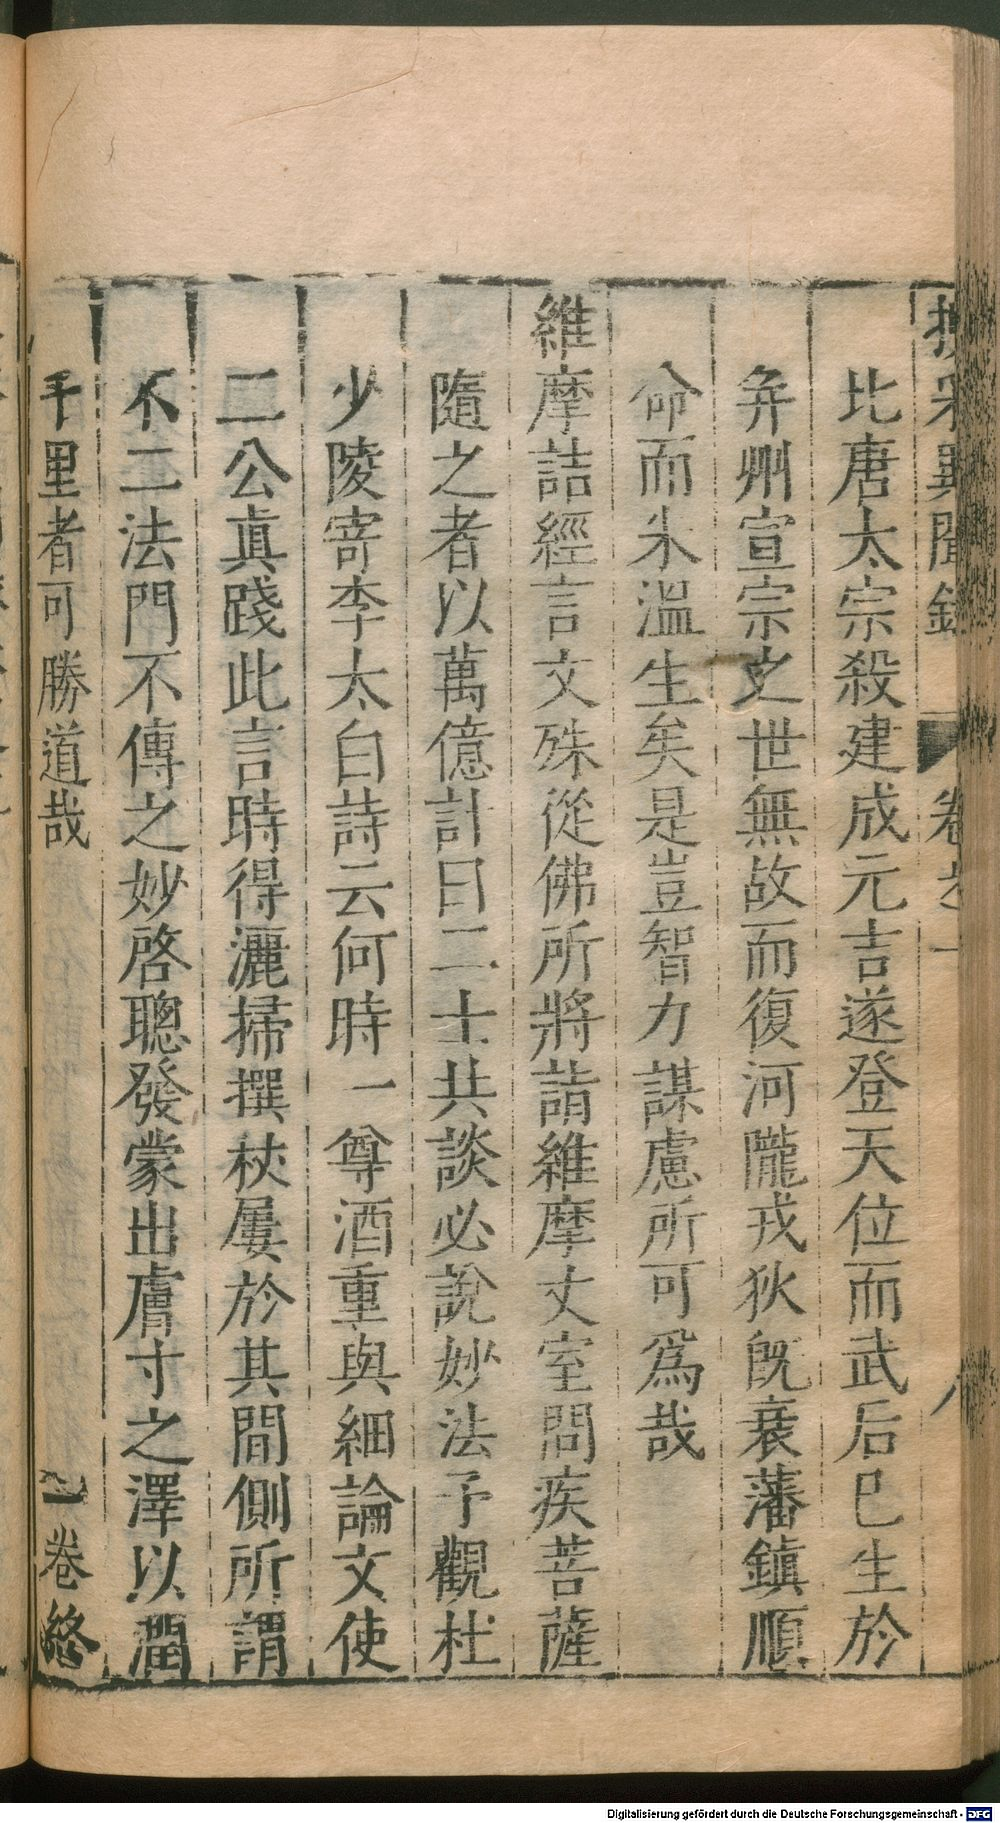 採異聞錄 卷之一 八
比唐太宗殺建成元吉遂登天位而武后已生於
并州宣宗之世無故而復河隴戎狄旣衰藩鎮順
命而朱溫生矣是豈智力謀慮所可爲哉
維摩詰經言文殊從佛所將詣維摩丈室問疾菩薩
隨之者以萬億計曰二士共談必說妙法予觀杜
少陵寄李太白詩云何時一尊酒重與細論文使
二公眞踐此言時得灑掃撰杖屨於其間側所謂
不二法門不傳之妙啓聰發蒙出膚寸之澤以潤
千里者可勝道哉 一卷終
Digitalisierung gefördert durch die Deutsche Forschungsgemeinschaft - DFG